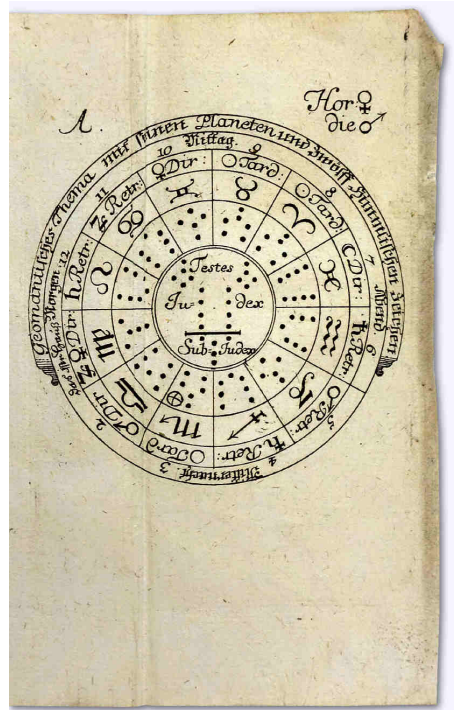 A.
Hor: ♀
die ♂
Geomantisches Thema mit seinen Planeten und Zwölff Himmlischen Zeichen
10 Mittag. 9
8
7
Abend 6
5
4 Mitternacht. 3
2
Morgen. 12
11
☿ Dir:
☉ Tard:
☉ Tard:
☾ Dir:
♄ Retr:
♂ Retr:
♄ Retr:
☉ Tard
♂ Dir
♀ Dir:
♄ Retr:
♃ Retr:
♊ ♉ ♈ ♓ ♒ ♑ ♐ ♏ ♎ ♍ ♌ ♋
Testes
Ju- dex
Sub-Judex